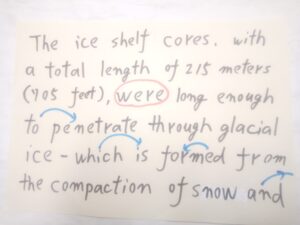 The ice shelf cores. with
a total length of 215 meters
(705 feet), were long enough
to penetrate through glacial
ice - which is formed from
the compaction of snow and